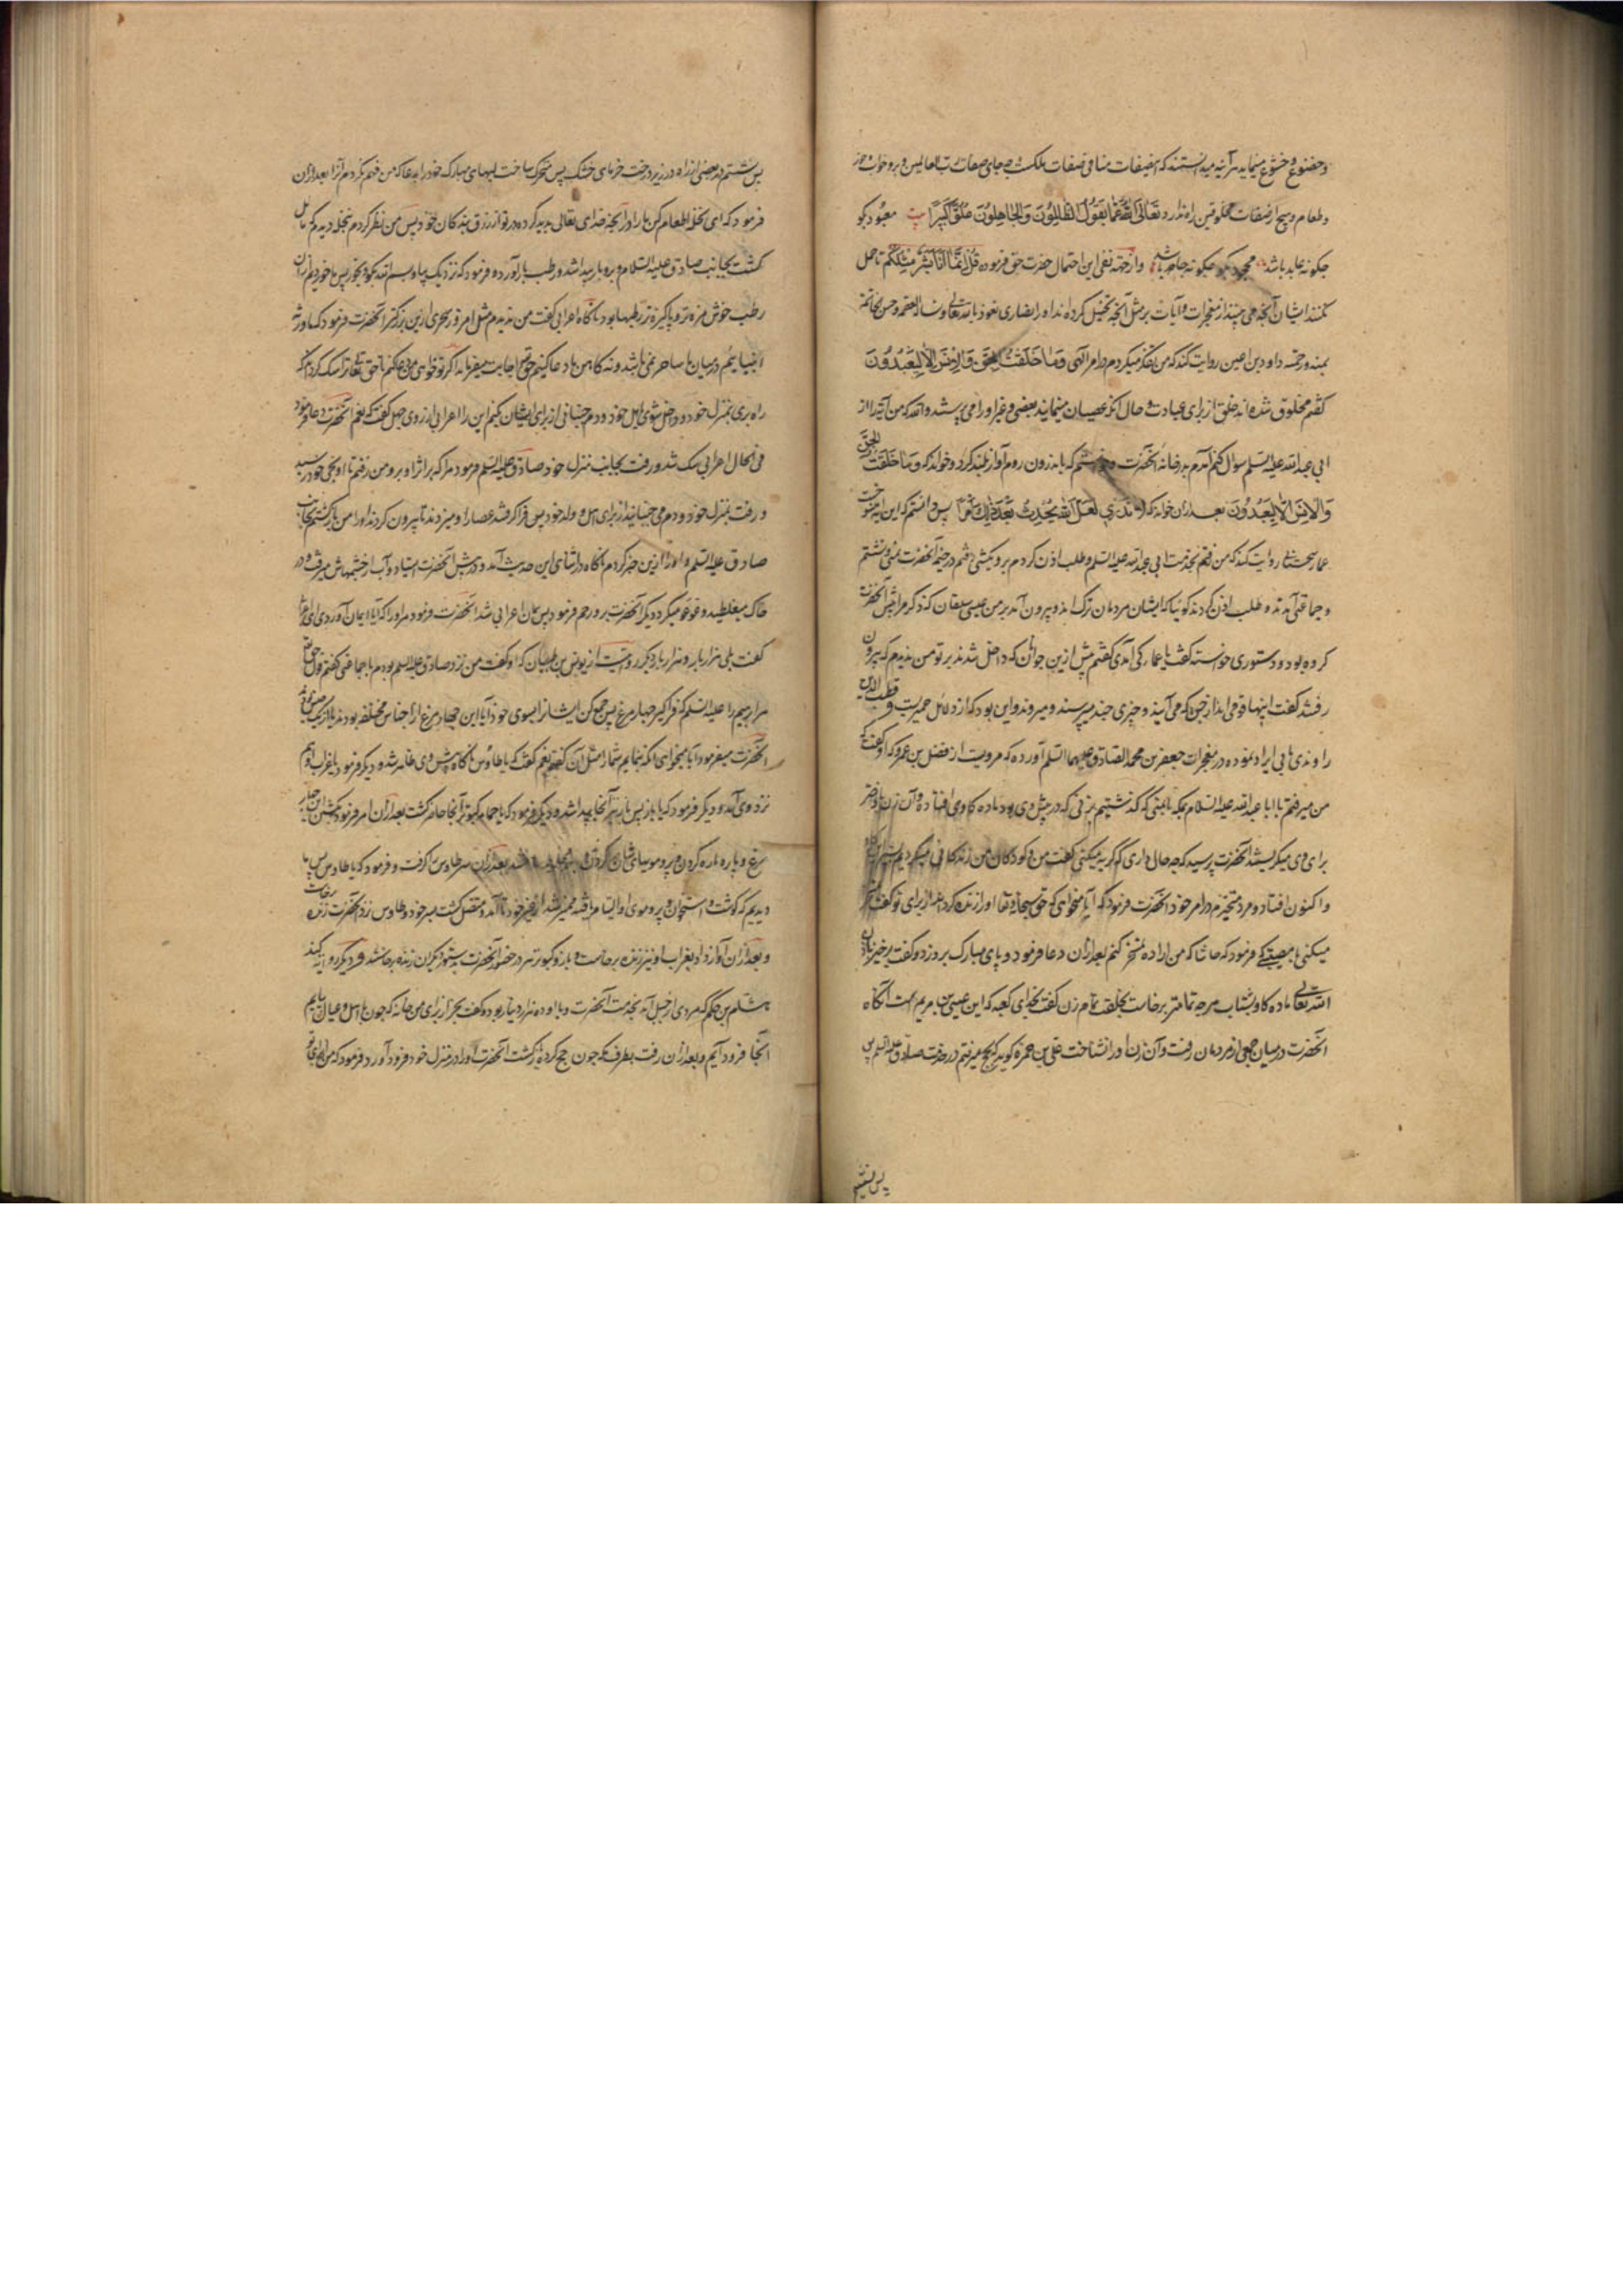 و خضوع و خشوع مینماید هر آینه میدانستند که این صفات منافی صفات ملکست چه جای صفات رب العالمین و بر و خواب و خور
و طعام و هیچ از صفات مخلوقین راه ندارد تَعَالَى اللهُ عَمَّا يَقُولُ الظَّالِمُونَ وَالْجَاهِلُونَ عُلُوًّا كَبِيرًا معبود بگو
چگونه عابد باشد چگونه جاحد باشد و از جهة نفی این احتمال حضرت حق فرموده قُلْ إِنَّمَا أَنَا بَشَرٌ مِثْلُكُمْ تا حمل
نکنند ایشان آنچه می بینند از معجزات و آیات بر مثل آنچه تخیل کرده اند او را نصاری نعوذ بالله تعالی و نساله العصمه و حسن الخاتمه
بمنه و رحمته داود بن اعین روایت کند که من تفکر میکردم در امر الهی وَمَا خَلَقْتُ الْجِنَّ وَالْإِنْسَ إِلَّا لِيَعْبُدُونَ
گفتم مخلوق شده اند خلق از برای عبادت و حال آنکه عصیان مینمایند بعضی و غیر او را می پرستند والله که من آیه را از
ابی عبد الله علیه السلم سوال کنم آمدم بدر خانه آنحضرت که باندرون روم آواز بلند کرد و خواند که وَمَا خَلَقْتُ الْجِنَّ
وَالْإِنْسَ إِلَّا لِيَعْبُدُونَ بعد از ان خواند که لَا تَدْرِي لَعَلَّ اللهَ يُحْدِثُ بَعْدَ ذَلِكَ أَمْرًا پس دانستم که این آیه منسوخست
عمار سجستانی روایت کند که من رفتم بخدمت ابی عبد الله علیه السلم و طلب اذن کردم در خیمه آنحضرت بمنی و نشستم
و جماعتی آمدند و طلب اذن کردند گوئیا که ایشان مردمان ترک اند و بیرون آمد بر من عیسی سلقان که ذکر مرا پیش آنحضرت
کرده بود و دستوری خواسته گفت یا عمار کی آمدی گفتم پیش ازین جوانان که داخل شدند بر تو من ندیدم که بیرون
رفتند گفت اینها قومی اند از جن که می آیند و چیزی چند میپرسند و میروند و این بود که از دلائل حمیریست و قطب الدین
راوندی بابی ایراد نموده در معجزات جعفر بن محمد الصادق علیهما السلم آورده که مرویست از مفضل بن عمر و که او گفت که
من میرفتم با ابا عبد الله علیه السلام بمکه یا بمنی که گذشتیم بزنی که در پیش وی بود ماده گاوی افتاده و آن زن با دختر
برای وی میگریستند آنحضرت پرسید که چه حال داری که گریه میکنی گفت من و کودکان من زندگانی میکردیم
و اکنون افتاد و مرد متحیرم در امر خود آنحضرت فرمود که آیا میخواهی که حق سبحانه و تعالی او را زنده کرداند از برای تو گفت
میکنی با مصیبتی که فرمود که حاشا که من اراده تمسخر کنم بعد از ان دعا فرمود و پای مبارک بر وزد و گفت برخیز باذن
الله تعالی ماده گاو بشتاب هر چه تمامتر برخاست بخلقت تمام زن گفت بخدای کعبه که این عیسی بن مریم است آنگاه
آنحضرت در میان جمعی از مردمان رفت و آن زن او را نشناخت علی بن حمزه گوید که بحج میرفتم در خدمت صادق علیه السلم پس
پس نشستیم
پس نشستیم در بعضی از راه در زیر درخت خرمای خشک پس متحرک ساخت لبهای مبارک خود را بدعا که من فهم نکردم آنرا بعد از ان
فرمود که ای نخله اطعام کن ما را از آنچه خدای تعالی پدید کرده در تو از رزق بندگان خود پس من نظر کردم بنخله دیدم که مایل
گشت بجانب صادق علیه السلام و برو بار پیدا شد و رطب بار آورده فرمود که نزدیک بیا و بسم الله بگو و بخور پس ما خوردیم از ان
رطب خوش مزه تر و پاکیزه تر رطبها بود ناگاه اعرابی گفت من ندیدم مثل امروز سحری ازین بزرگتر آنحضرت فرمود که ما ورثه
انبیائیم در میان ما ساحر نمی باشد و نه کاهن ما دعا کنیم حق تعالی اجابت میفرماید اگر تو خواهی من دعا کنم تا حق تعالی ترا سک گرداند که
راه بری بمنزل خود و داخل شوی اهل خود و دم جنبانی از برای ایشان بکنم این را اعرابی از روی جهل گفت که نعم آنحضرت دعا فرمود
فی الحال اعرابی سک شد و رفت بجانب منزل خود صادق علیه السلم فرمود مرا که بر اثر او برو من رفتم تا او بحی خود رسید
و رفت بمنزل خود و دم می جنبانید از برای اهل و ولد خود پس فرا گرفتند عصا را و میزدند تا بیرون کردند او را من بازگشتم بجانب
صادق علیه السلم و او را ازین خبر کردم آنگاه در اثنای این حدیث آمد و در پیش آنحضرت استاد و آب از چشمهاش میرفت و در
خاک میغلطید و عوعو میکرد دیگر آنحضرت برو رحم فرمود پس همان اعرابی شد آنحضرت فرمود مر او را که آیا ایمان آوردی ای اعرابی
گفت بلی هزار بار و هزار بار دیگر روایتست از یونس بن ظبیان که او گفت من نزد صادق علیه السلم بودم با جماعتی گفتم قول حق تعالی
مر ابراهیم را علیه السلم که فرا گیر چهار مرغ پس جمع کن ایشانرا بسوی خود آیا این چهار مرغ از اجناس مختلفه بودند یا از یک جنس
آنحضرت میفرمود آیا میخواهی آنکه بنمایم شما را مثل آن گفتیم نعم گفت که یا طاوس ناگاه پیش وی ظاهر شد و دیگر فرمود یا غراب او هم
نزد وی آمد و دیگر فرمود که یا باز پس باز نیز آنجا پیدا شد و دیگر فرمود که یا حمامه کبوتر آنجا حاضر گشت بعد از ان امر فرمود بکشتن این چهار
مرغ و پاره پاره کردن و پر و مویهای شان بعد از ان سر طاوس گرفت و فرمود که یا طاوس پس ما
دیدیم که گوشت و استخوان و پر و موی او التیام یافته ممیز شد از غیر خود تا آمد و متصل گشت بسر خود و طاوس نزد آنحضرت زنده برخاست
و بعد از ان آواز داد بغراب او نیز زنده برخاست و باز و کبوتر نیز در حضور آنحضرت بدستور دیگران زنده برخاستند و دیگر روایت کنند
هشام بن حکم که مردی از جبل آمد بخدمت آنحضرت و با او ده هزار دینار بود و گفت بخر از برای من خانه که چون با اهل و عیال بیایم
آنجا فرود آیم و بعد از ان رفت بطرف مکه چون حج کرد و باز گشت آنحضرت او را در منزل خود فرود آورد و فرمود که من برای تو